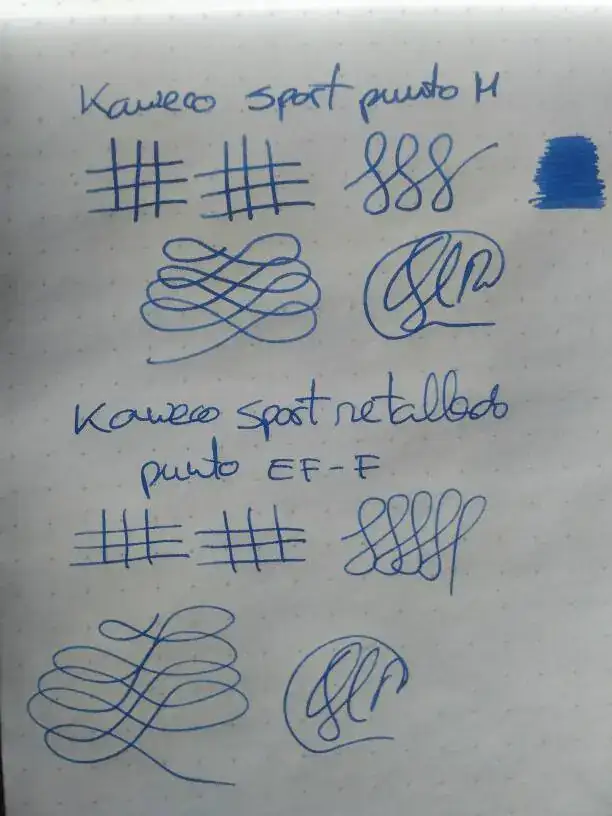 Kaweco sport punto M
Kaweco sport retallado
punto EF-F